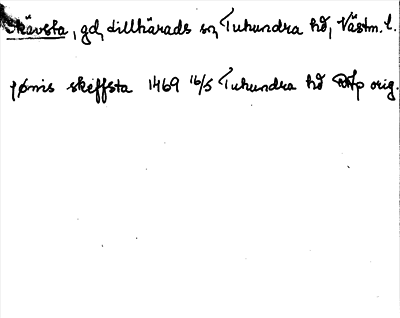 Skävsta, gd, Lillhärads sn, Tuhundra hd, Västm. l.
jønis skeffsta 1469 16/5 Tuhundra hd RAp orig.